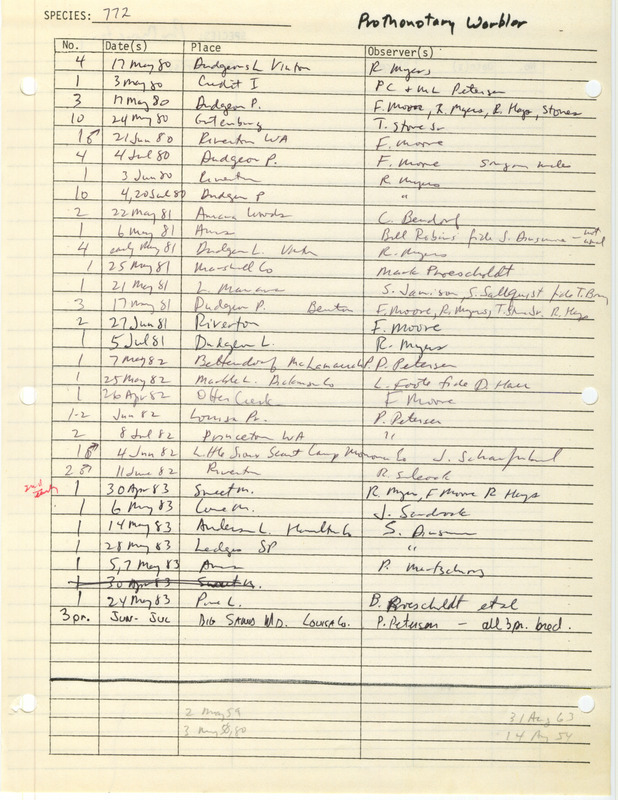 SPECIES: 772 Prothonotary Warbler
No. Date(s) Place Observer(s)
4 17 May 80 Dudgeon L Vinton R. Myers
1 3 May 80 Credit I PC & ML Petersen
3 17 May 80 Dudgeon P. F. Moore, R. Myers, R. Hays, Stones
10 24 May 80 Gutenburg T. Stone Jr
1♂ 21 Jun 80 Riverton WA F. Moore
4 4 Jul 80 Dudgeon P. F. Moore singing male
1 3 Jun 80 Riverton R. Myers
10 4, 20 Jul 80 Dudgeon P "
2 22 May 81 Amana Woods C. Bendorf
1 6 May 81 Ames Bill Robins fide J. Dinsmore - not usual
4 early May 81 Dudgeon L. Vinton R. Myers
1 25 May 81 Marshall Co Mark Proescholdt
1 21 May 81 L. Manawa S. Jamison, G. Sallquist fide T. Bray
3 17 May 81 Dudgeon P. Benton F. Moore, R. Myers, T. Stone Jr. R. Hays
2 27 Jun 81 Riverton F. Moore
1 5 Jul 81 Dudgeon L. R. Myers
1 7 May 82 Bettendorf McLanarch P. P. Petersen
1 25 May 82 Marble L. Dickinson Co L. Foote fide D. Harr
1 26 Apr 82 Otter Creek F Moore
1-2 Jun 82 Louisa Co. P. Petersen
2 8 Jul 82 Princeton WA "
1♂ 4 Jun 82 Little Sioux Scout Camp Monona Co J. Schaufenbuel
2♂ 11 June 82 Riverton R. Silcock
2nd early 1 30 Apr 83 Sweet M. R. Myers, F Moore R Hays
1 6 May 83 Cone M. J. Sandrock
1 14 May 83 Anderson L. Hamilton Co S. Dinsmore
1 28 May 83 Ledges SP "
1 5, 7 May 83 Ames P. Mertzchong
1 30 Apr 83 Sweet M.
1 24 May 83 Pine L. B. Proescholdt et al
3 pr. JUN - JUL BIG SAND MD. LOUISA CO. P. Petersen - all 3 pr. bred.
2 May 59 31 Aug 63
3 May 58, 80 14 Aug 54